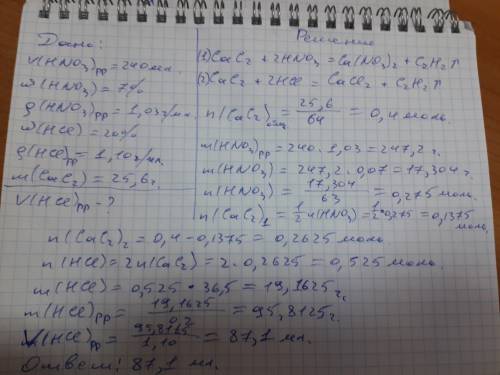 Дано:
V(HNO₃)рр = 240 мл.
ω(HNO₃) = 7%
ρ(HNO₃)рр = 1,03 г/мл.
ω(HCl) = 20%
ρ(HCl)рр = 1,10 г/мл.
m(CaC₂) = 25,6 г.
V(HCl)рр - ?
Решение
(1) CaC₂ + 2HNO₃ = Ca(NO₃)₂ + C₂H₂↑
(2) CaC₂ + 2HCl = CaCl₂ + C₂H₂↑
n(CaC₂)общ. = 25,6/64 = 0,4 моль.
m(HNO₃)рр = 240 · 1,03 = 247,2 г.
m(HNO₃) = 247,2 · 0,07 = 17,304 г.
n(HNO₃) = 17,304/63 = 0,275 мол.
n(CaC₂)₁ = 1/2 n(HNO₃) = 1/2 · 0,275 = 0,1375 моль.
n(CaC₂)₂ = 0,4 - 0,1375 = 0,2625 моль
n(HCl) = 2n(CaC₂) = 2 · 0,2625 = 0,525 моль.
m(HCl) = 0,525 · 36,5 = 19,1625 г.
m(HCl)рр = 19,1625/0,2 = 95,8125 г.
V(HCl)рр = 95,8125/1,10 = 87,1 мл.
Ответ: 87,1 мл.